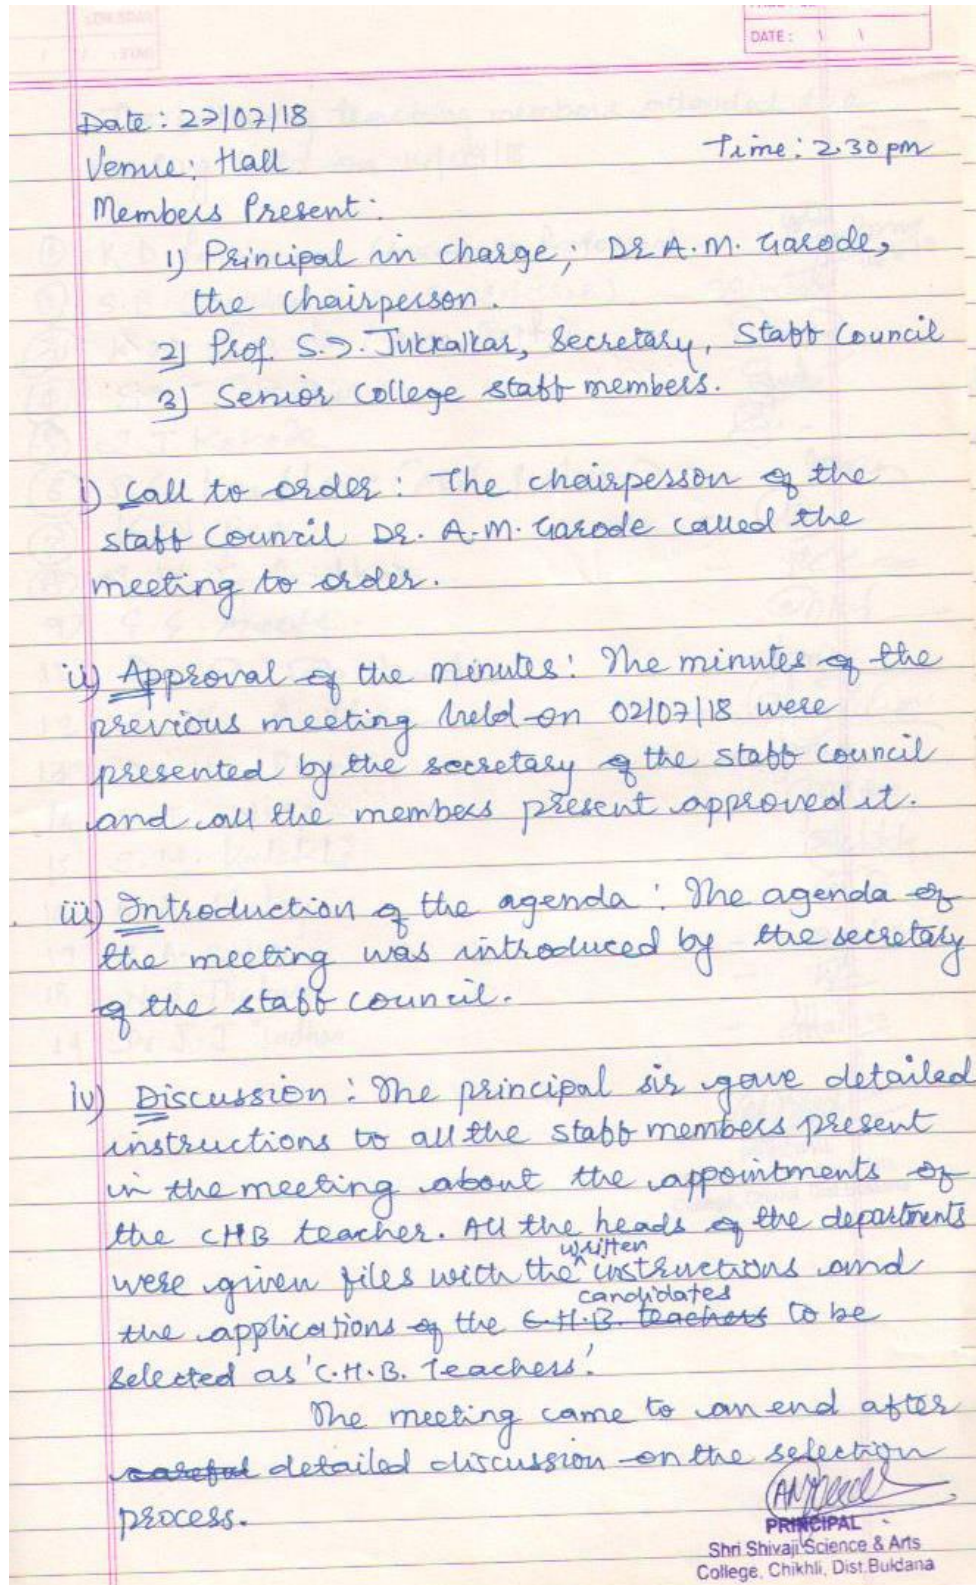 DATE: \ \
Date: 27/07/18
Time: 2.30 pm
Venue: Hall
Members Present:
1) Principal in charge; Dr A.M. Garode,
the chairperson.
2) Prof. S.D. Jukkalkar, Secretary, Staff Council
3) Senior College staff members.
i) Call to order: The chairperson of the
staff Council Dr. A.M. Garode called the
meeting to order.
ii) Approval of the minutes: The minutes of the
previous meeting held on 02/07/18 were
presented by the secretary of the staff council
and all the members present approved it.
iii) Introduction of the agenda: The agenda of
the meeting was introduced by the secretary
of the staff council.
iv) Discussion: The principal sir gave detailed
instructions to all the staff members present
in the meeting about the appointments of
the CHB teacher. All the heads of the departments
written
were given files with the ^ instructions and
candidates
the applications of the C.H.B. teachers to be
selected as 'C.H.B. Teachers'.
The meeting came to an end after
careful detailed discussion on the selection
process.
PRINCIPAL
Shri Shivaji Science & Arts
College, Chikhli, Dist.Buldana